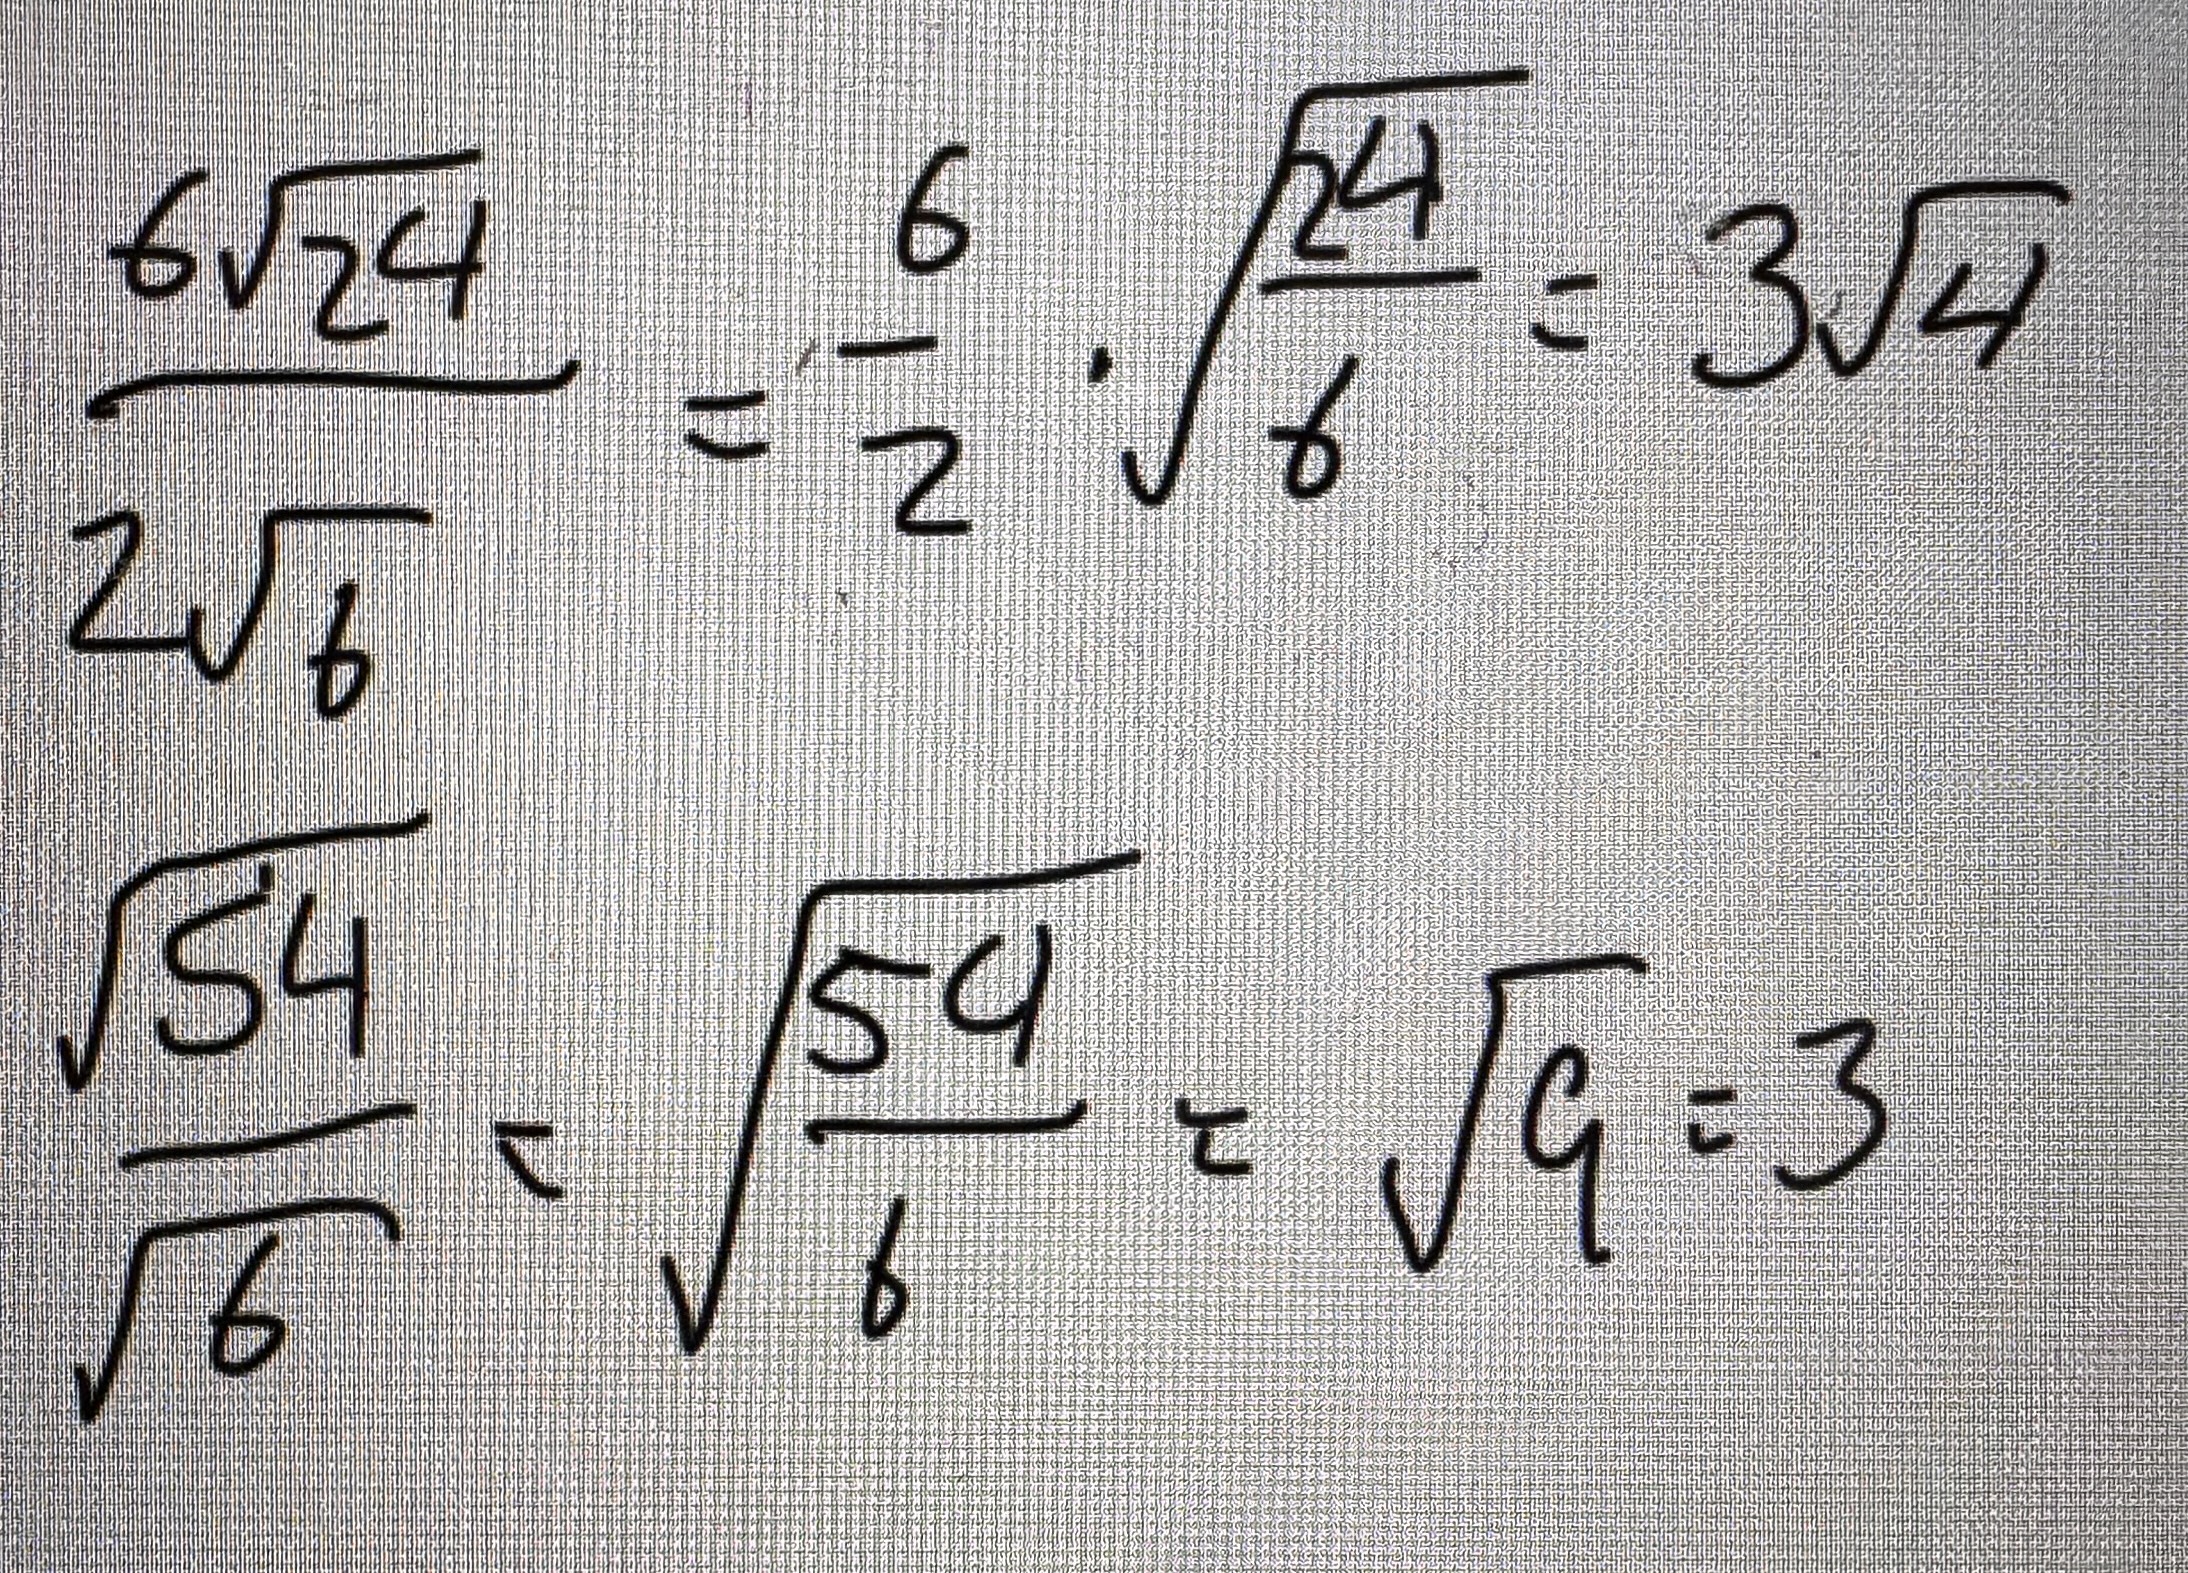 6√24 / 2√6 = 6/2 · √(24/6) = 3√4
√54 / √6 = √(54/6) = √9 = 3